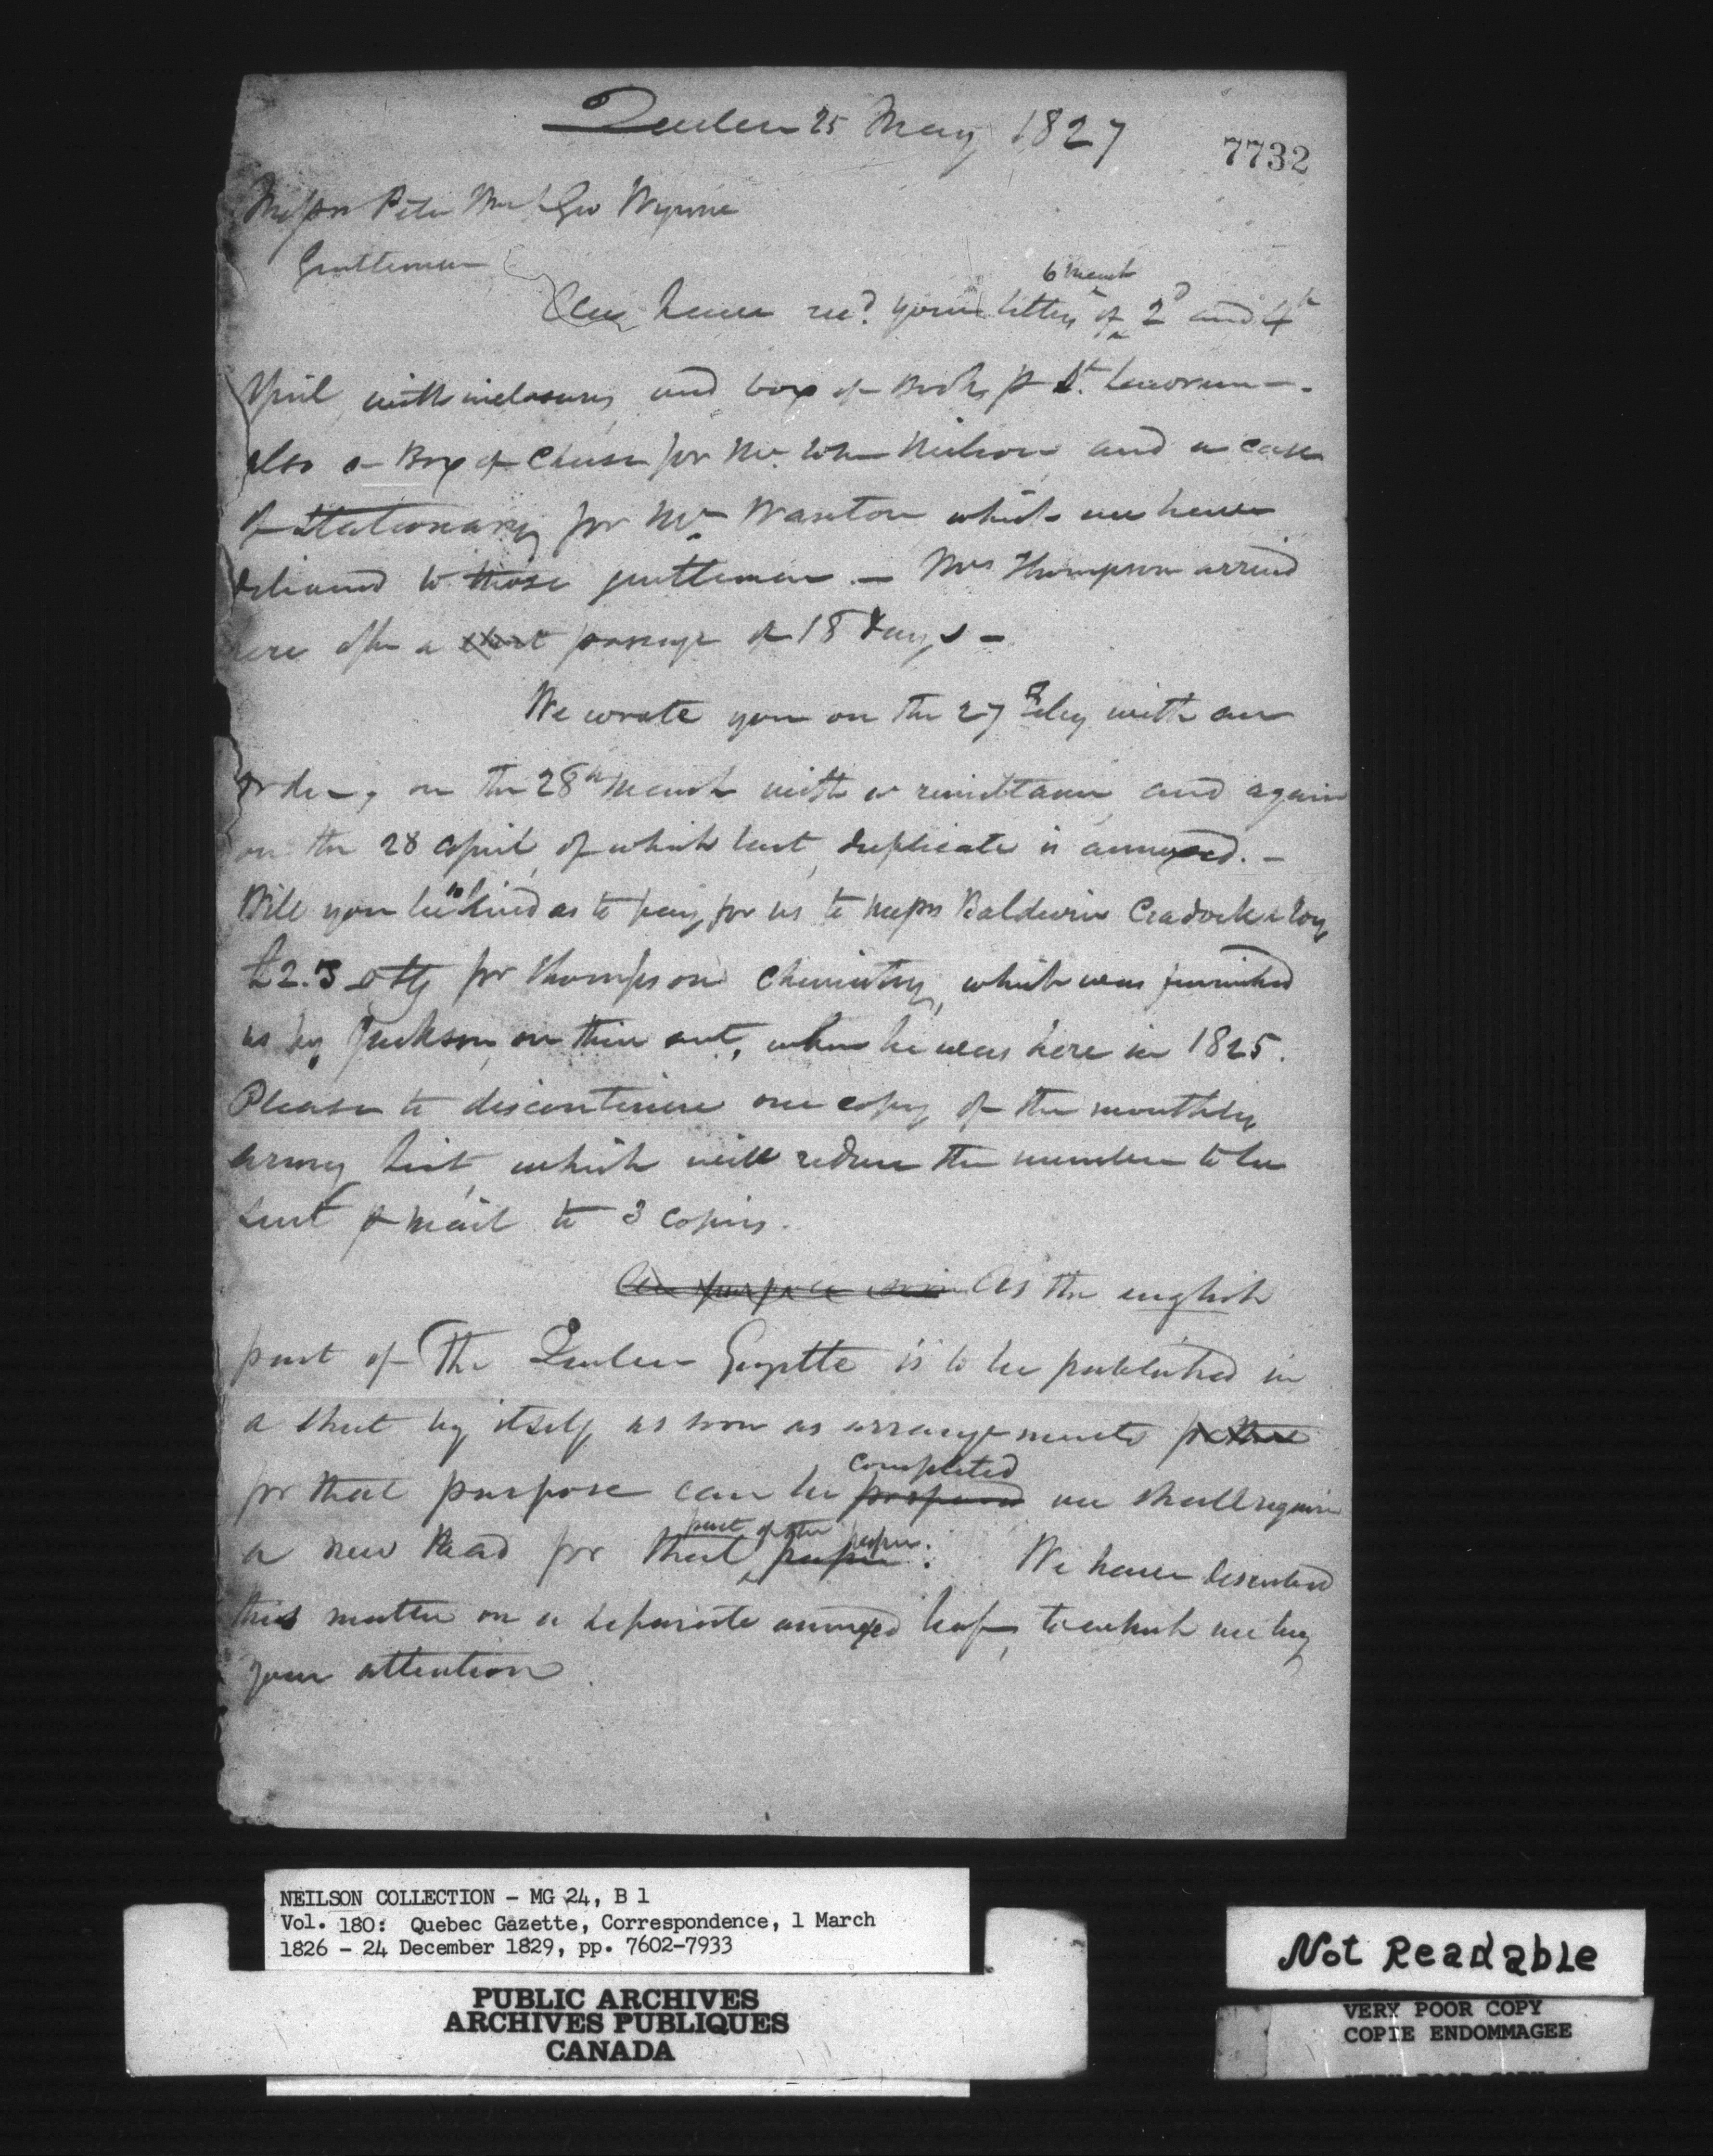 Quebec 25 May 1827
7732
Messrs Peter Wm & Geo Wynne
Gentlemen
6 March
We have recd your letters of 2d and 4th
April with inclosures and box of Books p St.
also a Box of Cheese for Mr. Neilson and a case
of Stationary for Mr which we have
delivered to those gentlemen — Mrs Thompson arrived
here after a short passage of 18 Days —
We wrote you on the 27 Feby with an
order, on the 28th March with a remittance, and again
on the 28 April, of which last, duplicate is annexed. —
Will you be so kind as to pay for us to Messrs Baldwin Cradock & Joy
£2.3 for Thompson Chemistry, which was furnished
us by Jackson, on their act, when he was here in 1825.
Please to discontinue one copy of the monthly
army List, which will reduce the number to be
sent p mail to 3 copies.
As the english
part of The Quebec Gazette is to be published in
a sheet by itself as soon as arrangements for that
completed
for that purpose can be prepared we shall require
part of the paper.
a new Head for that paper. We have described
this matter on a separate annexed leaf, to which we beg
your attention.
NEILSON COLLECTION - MG 24, B 1
Vol. 180: Quebec Gazette, Correspondence, 1 March
1826 - 24 December 1829, pp. 7602-7933
PUBLIC ARCHIVES
ARCHIVES PUBLIQUES
CANADA
Not Readable
VERY POOR COPY
COPIE ENDOMMAGEE